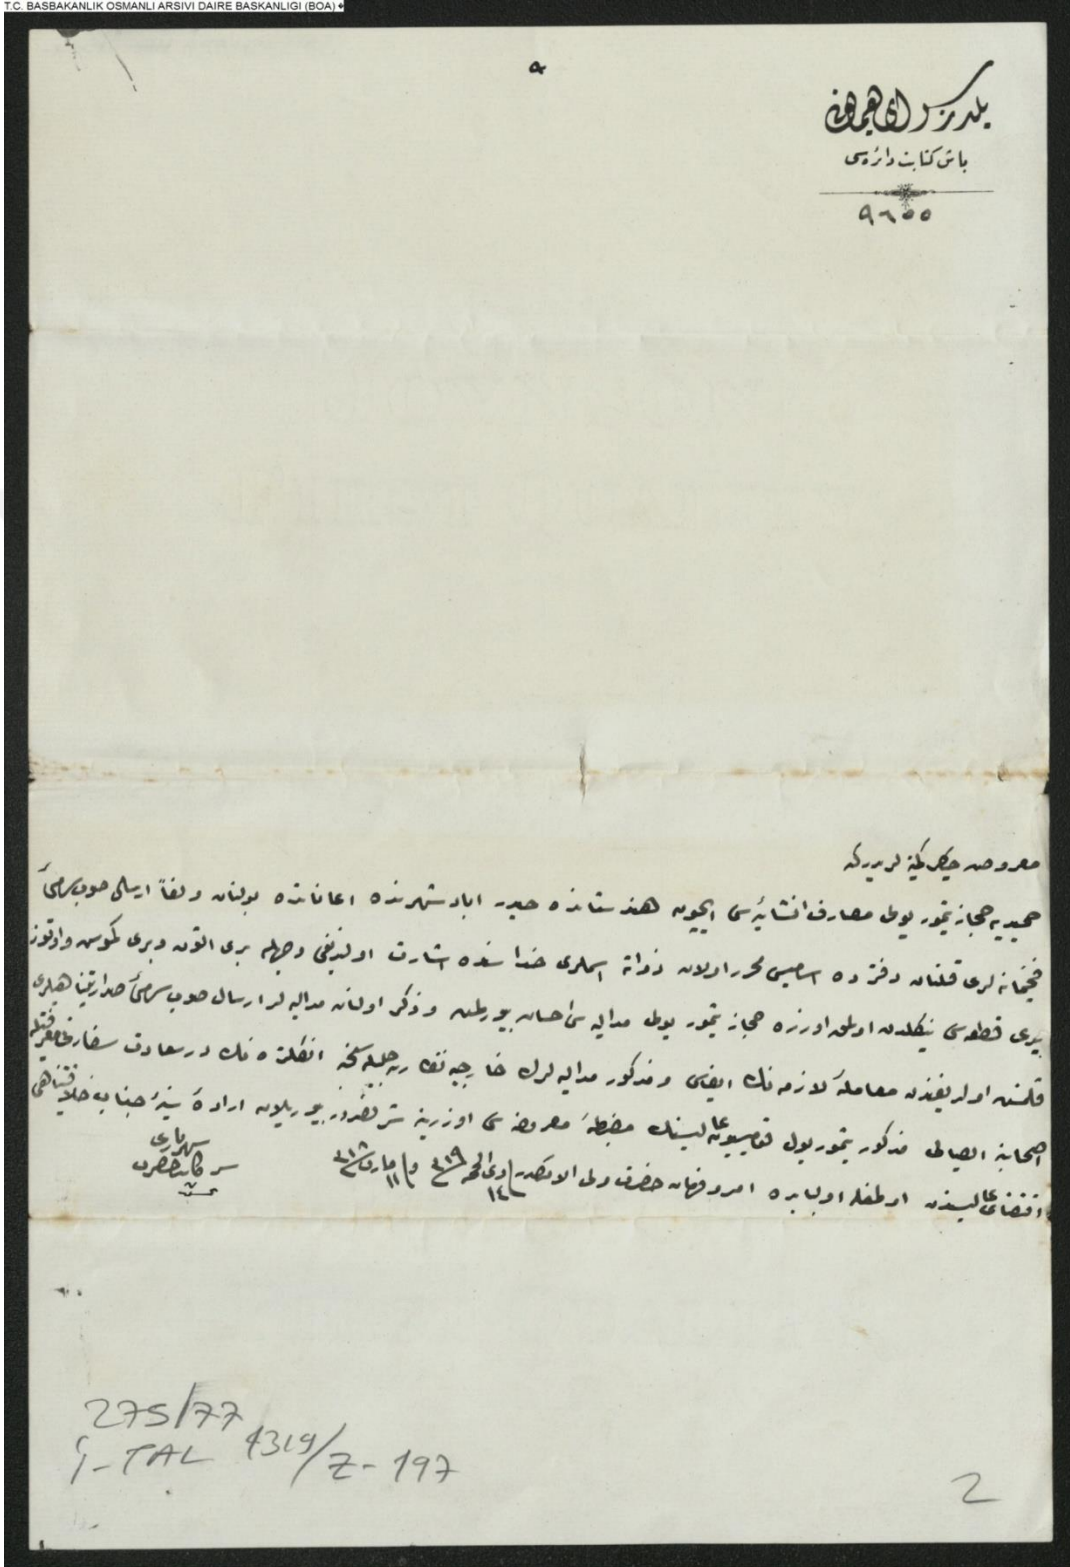 T.C. BASBAKANLIK OSMANLI ARSIVI DAIRE BASKANLIGI (BOA)
يلديز سراى همايونى
باش كتابت دائره سى
٩٦٥٥
معروض چاكر كمينه لريدركه
حميديه حجاز تيمور يولى مصارف انشائيه سى ايچون هندستانده حيدر اباد شهرنده اعاناتده بولنان و لفاً ارسال صوب سامئ
فخيمانه لرى قلنان دفترده اساميسى محرر اولان ذواته اسملرى حذاسنده اشارت اولنديغى وجهله برى التون و برى كموش و اوتوز
برى قطعه سى نيكلدن اولمق اوزره حجاز تيمور يولى مداليه سى احسان بيورلمش و ذكر اولنان مداليه لر ارسال صوب سامئ صدارتپناهيلرى
قلنمش اولديغندن معاملۀ لازمه نك ايفاسى و مذكور مداليه لرك خارجيه نظارت جليله سنجه انكلتره نك درسعادت سفارتى معرفتيله
اصحابنه ايصالى مذكور تيمور يول قوميسيون عاليسنك مضبطۀ معروضه سى اوزرينه شرفصدور بيوريلان ارادۀ سنيۀ جناب خلافتپناهى
اقتضاى عاليسندن اولمغله اولبابده امر و فرمان حضرت ولى الامركدر فى ١٤ ذى الحجه ٣١٩ و فى ١١ مارت ٣١٨
سركاتب حضرت
شهريارى
275/77
İ-TAL 1319/Z-197
2